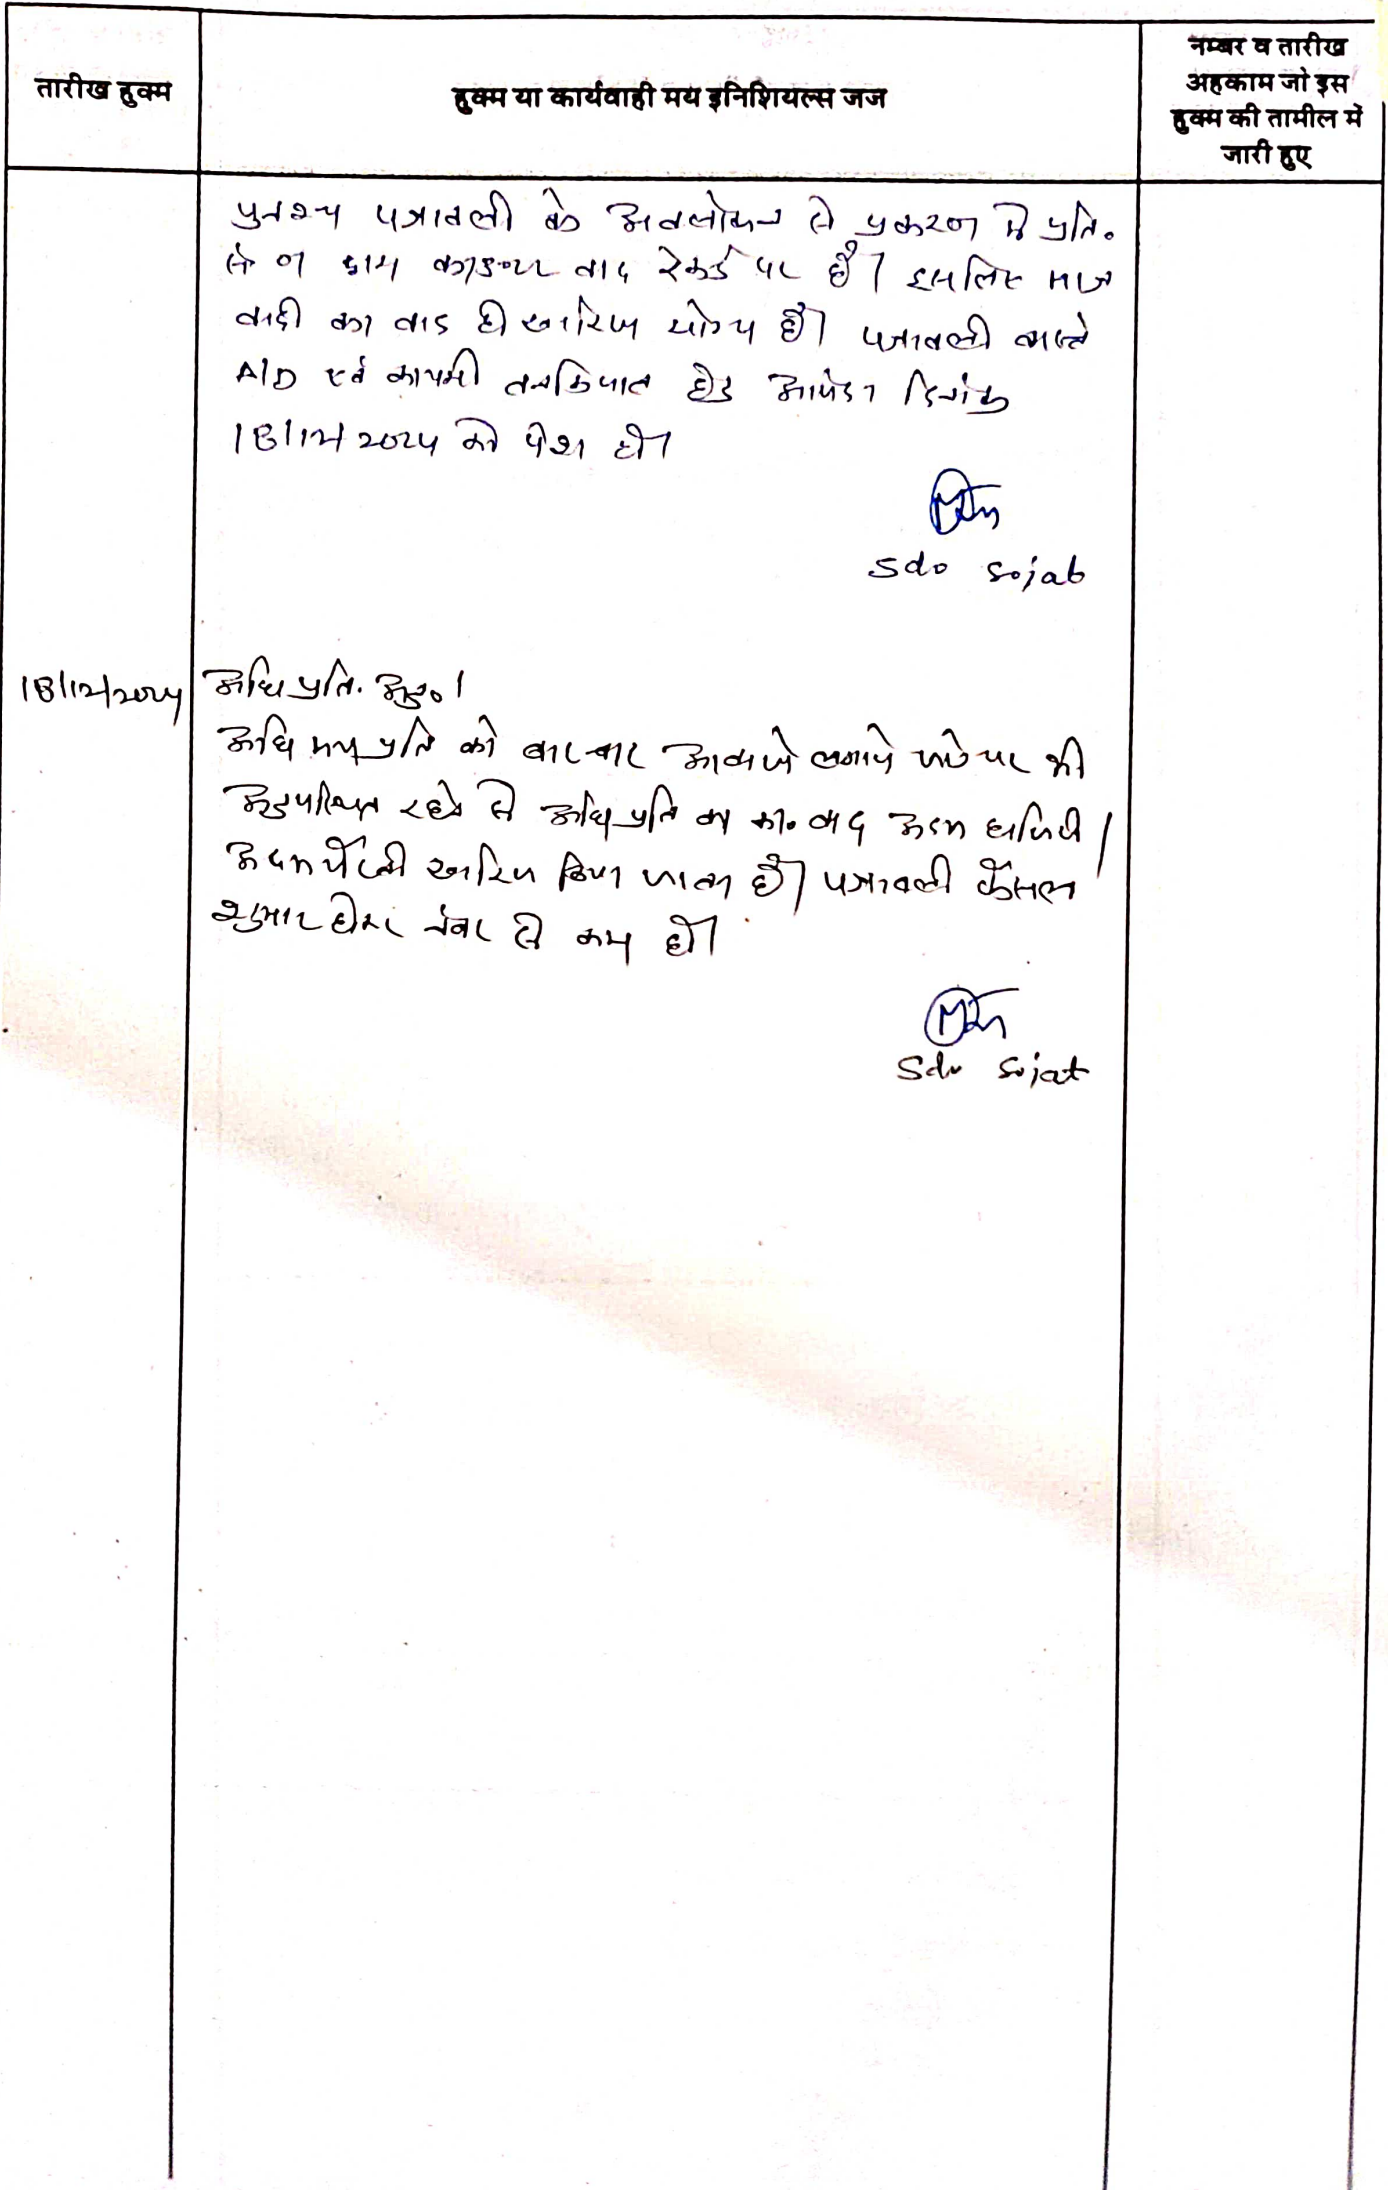 तारीख हुक्म
हुक्म या कार्यवाही मय इनिशियल्स जज
नम्बर व तारीख
अहकाम जो इस
हुक्म की तामील में
जारी हुए
पुनश्च पत्रावली के अवलोकन से प्रकरण में प्रति.
काउन्टर वाद रेकर्ड पर है। इसलिए मात्र
वादी का वाद ही खारिज योग्य है। पत्रावली वास्ते
A/D एवं कायमी तनकियात हेतु आयंदा दिनांक
18/12/2024 को पेश हो।
SDO Sojat
18/12/2024
अधि प्रति. अनु.।
अधि मय प्रति को बार-बार आवाजे लगाये जाने पर भी
अनुपस्थित रहने से अधि प्रति का का. वाद अदम हाजिरी/
अदम पैरवी खारिज किया जाता है। पत्रावली फैसल
शुमार होकर नंबर से कम हो।
SDO Sojat